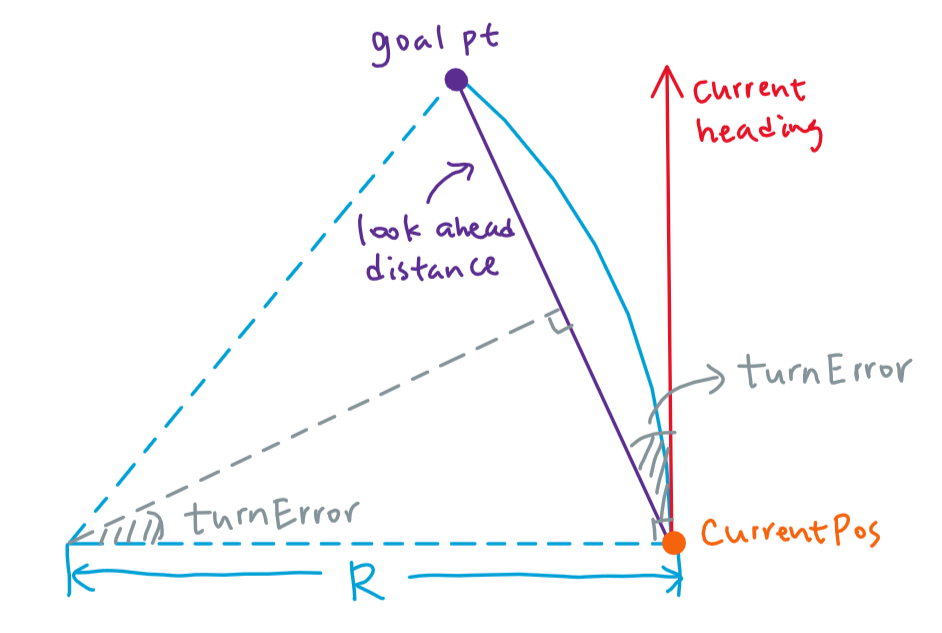 goal pt
Current
heading
look ahead
distance
turnError
turnError
CurrentPos
R